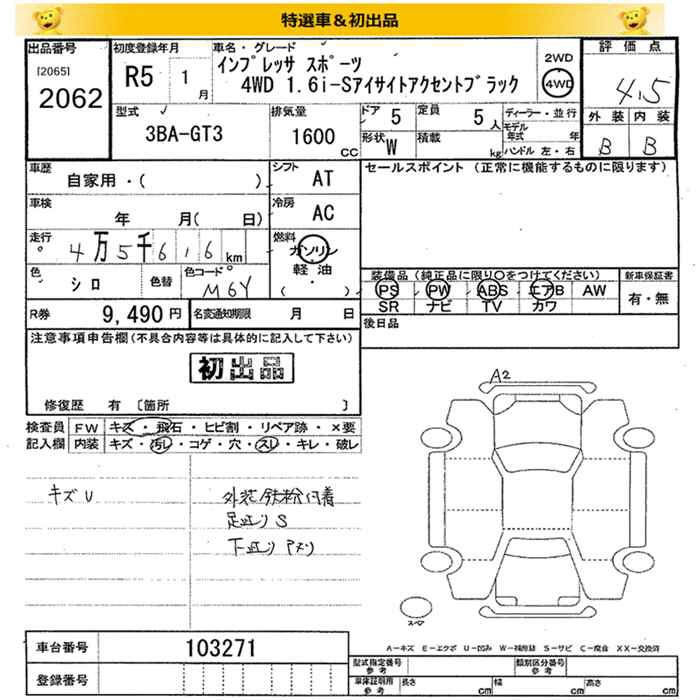 特選車＆初出品
出品番号
[2065]
2062
初度登録年月
R5 1 月
車名・グレード
インプレッサ スポーツ
4WD 1.6i-Sアイサイトアクセントブラック
2WD
4WD
評価点
4.5
外装 内装
B B
型式
3BA-GT3
排気量
1600 CC
ドア 5
定員 5 人
形状 W
積載 kg
ディーラー・並行
モデル年式 年
ハンドル 左・右
車歴
自家用・( )
シフト
AT
セールスポイント (正常に機能するものに限ります)
車検
年 月( 日)
冷房
AC
走行
4万5千616 km
燃料
ガソリン
軽油
( ・ )
色
シロ
色替
色コード
M6Y
装備品 (純正品に限り○をつけてください)
PS PW ABS エアB AW
SR ナビ TV カワ
新車保証書
有・無
R券
9,490 円
名変通知期限 月 日
後日品
注意事項申告欄(不具合内容等は具体的に記入して下さい)
初出品
修復歴 有 〔箇所 〕
検査員記入欄
FW キズ・飛石・ヒビ割・リペア跡・×要
内装 キズ・汚レ・コゲ・穴・スレ・キレ・破レ
キズU
外装鉄粉付着
足廻りS
下廻りアメリ
A2
スペア
A－キズ E－エクボ U－凹み W－補修跡 S－サビ C－腐食 XX－交換済
車台番号
103271
登録番号
型式指定番号 参考
類別区分番号 参考
車庫証明用 参考
長さ cm
幅 cm
高さ cm